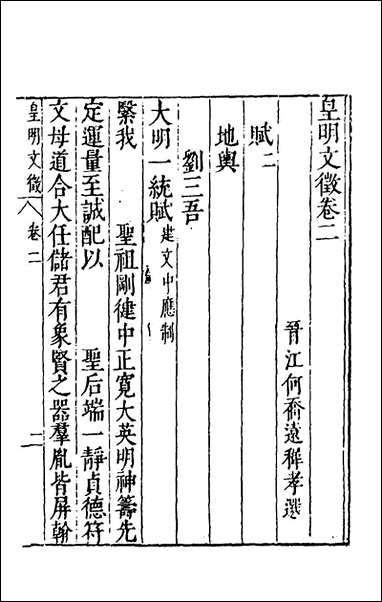 皇明文徵卷二
晉江何喬遠穉孝選
賦二
地輿
劉三吾
大明一統賦建文中應制
繄我 聖祖剛健中正寬大英明神籌先
定運量至誠配以 聖后端一靜貞德符
文母道合大任儲君有象賢之器羣胤皆屏翰
皇明文徵 卷二 二